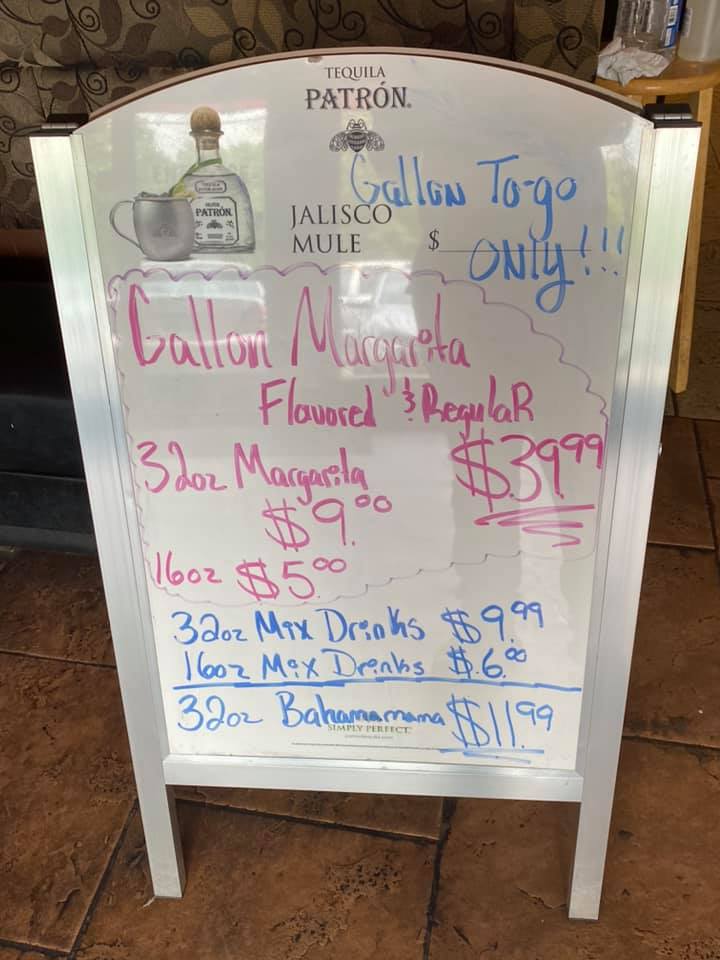 TEQUILA
PATRÓN.
Gallon To-go
JALISCO
MULE $
ONly!!!
PATRÓN
Gallon Margarita
Flavored & RegulaR
32oz Margarita $39.99
$9.00
16oz $5.00
32oz Mix Drinks $9.99
16oz Mix Drinks $6.00
32oz Bahamamama $11.99
SIMPLY PERFECT.